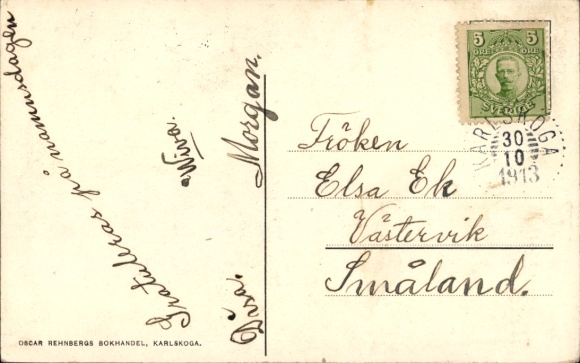 Gratuleras på namnsdagen
Wiva.
Morgan.
5 5
ÖRE ÖRE
SVERIGE
KARLSKOGA
30
10
1913
Fröken
Elsa Ek
Västervik
Småland.
OSCAR REHNBERGS BOKHANDEL, KARLSKOGA.